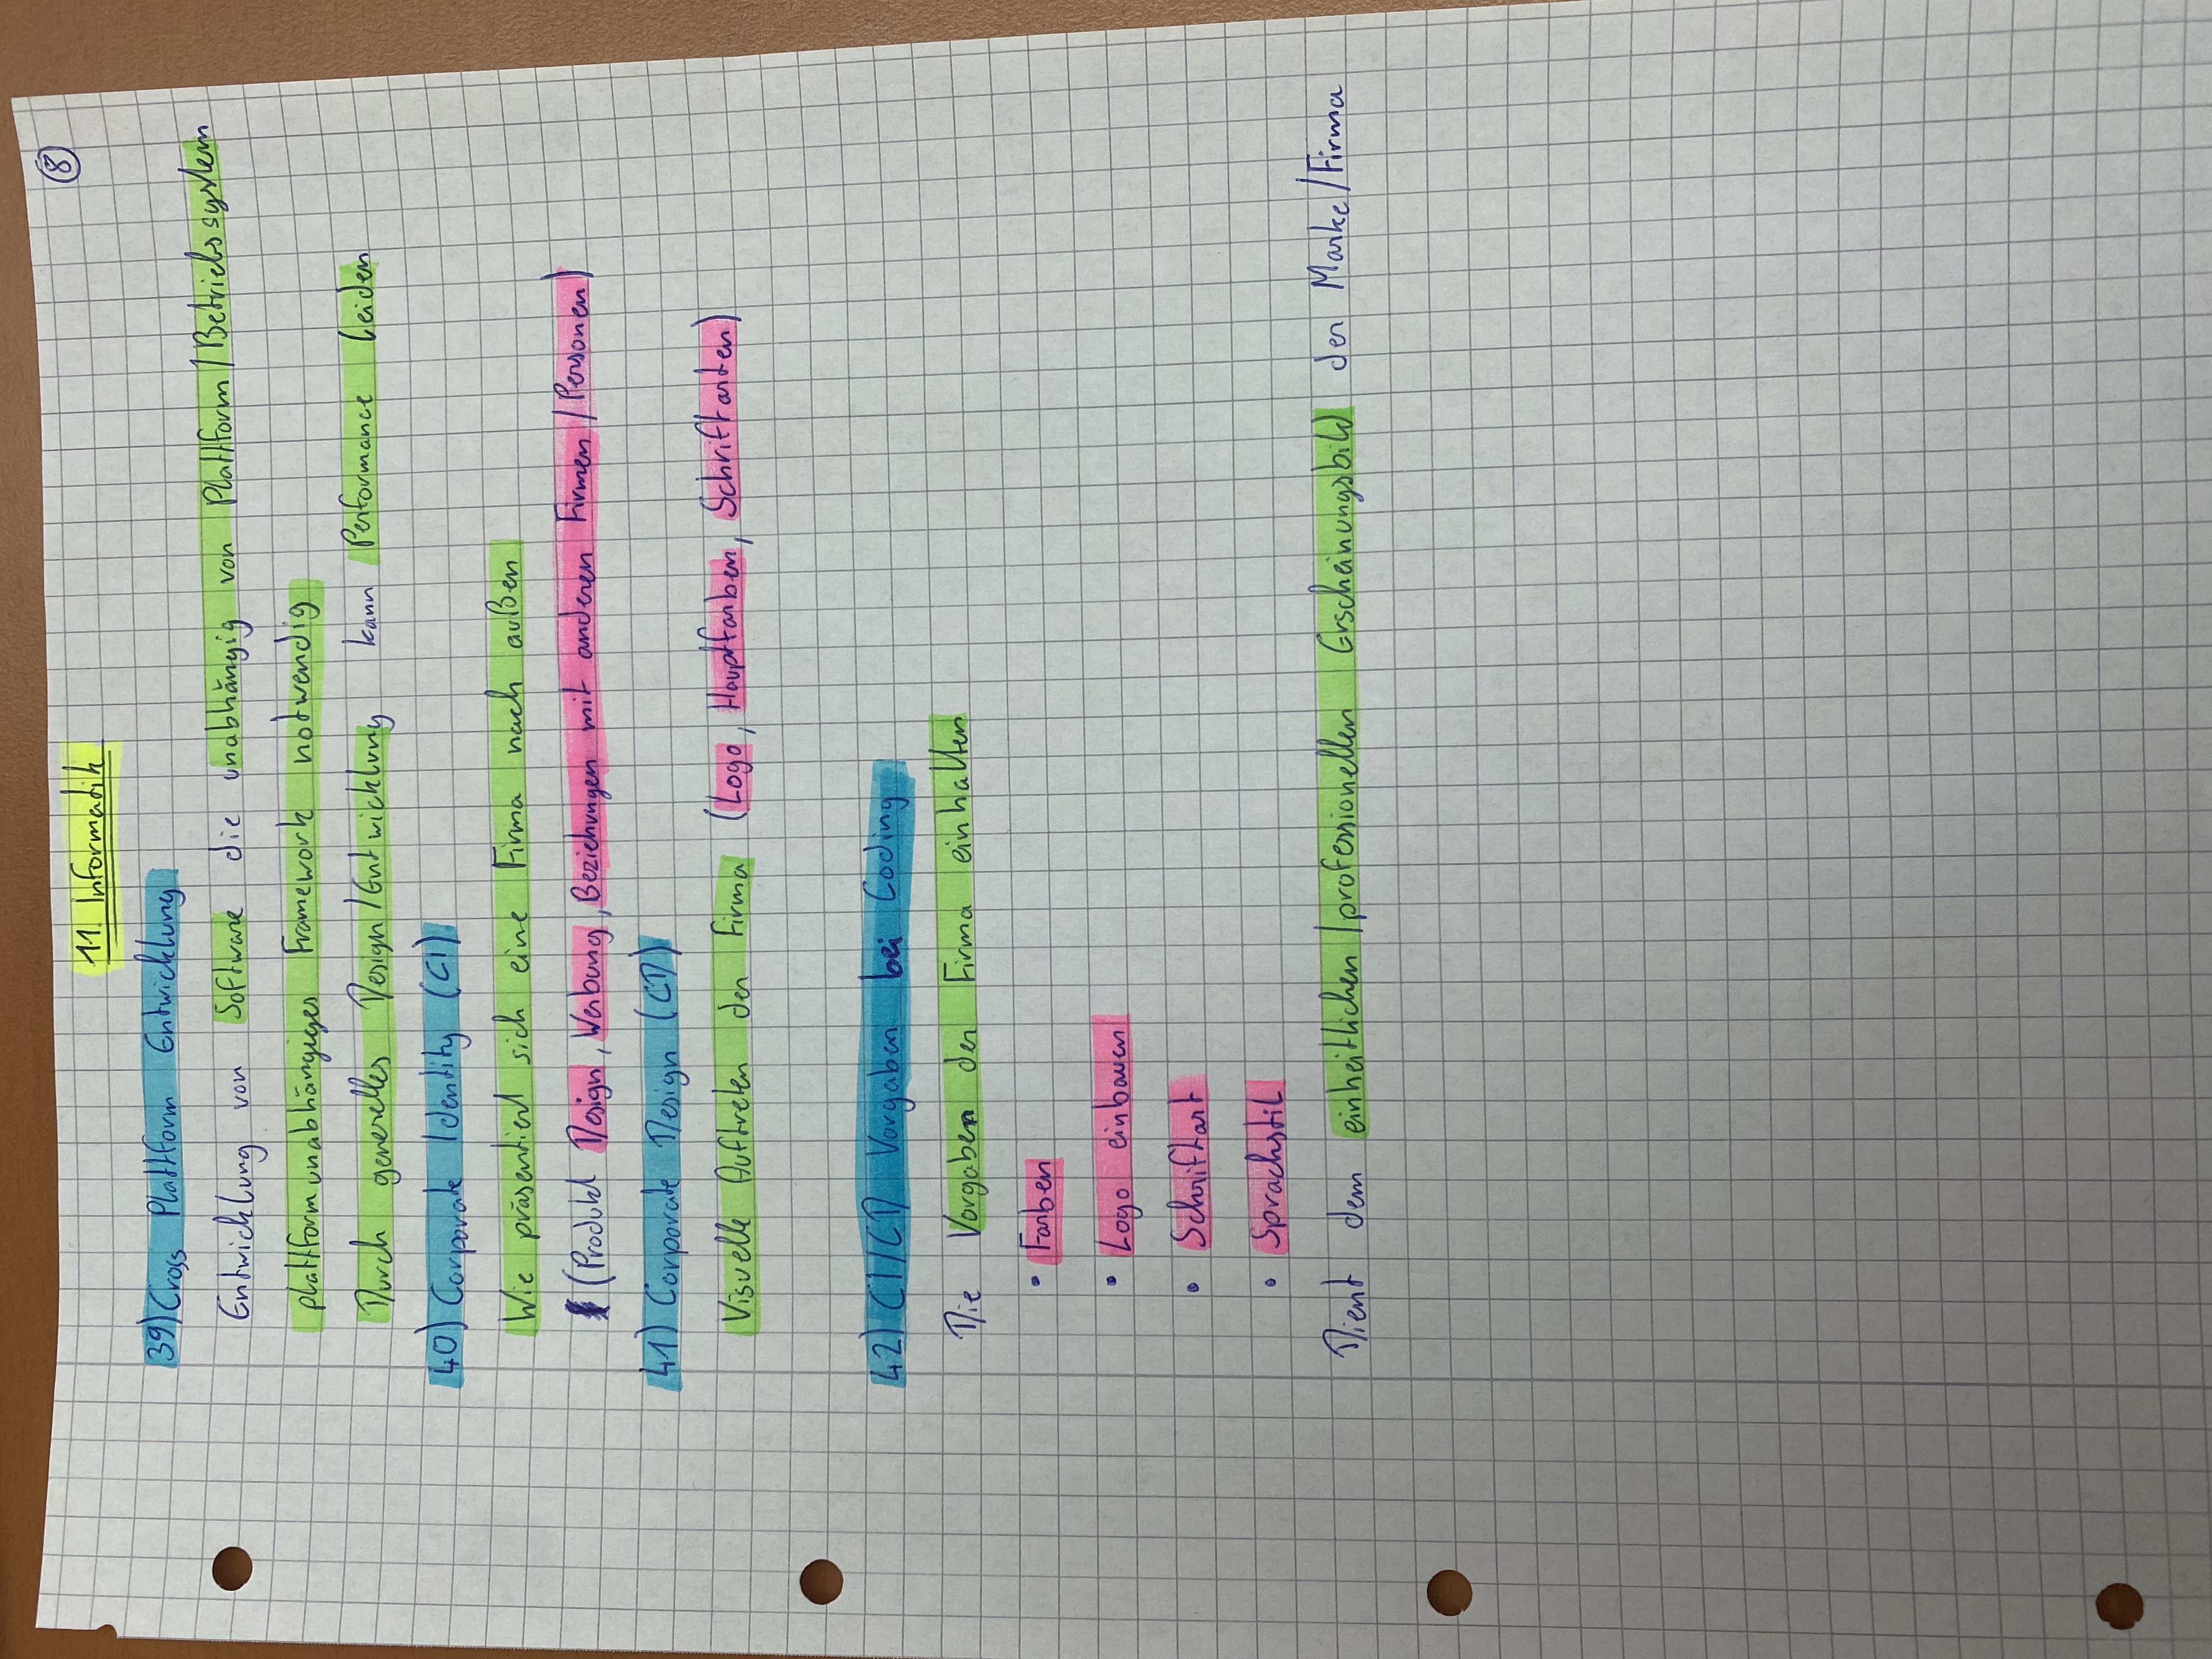 8
11. Informatik
39) Cross Plattform Entwicklung
Entwicklung von Software die unabhängig von Plattform/Betriebssystem
plattformunabhängiges Framework notwendig
Durch generelles Design/Entwicklung kann Performance leiden
40) Corporate Identity (CI)
Wie präsentiert sich eine Firma nach außen
(Produkt Design, Werbung, Beziehungen mit anderen Firmen/Personen)
41) Corporate Design (CD)
Visuelle Auftreten der Firma (Logo, Hauptfarben, Schriftarten)
42) CI/CD Vorgaben bei Coding
Die Vorgaben der Firma einhalten
• Farben
• Logo einbauen
• Schriftart
• Sprachstil
Dient dem einheitlichen/professionellen Erscheinungsbild der Marke/Firma